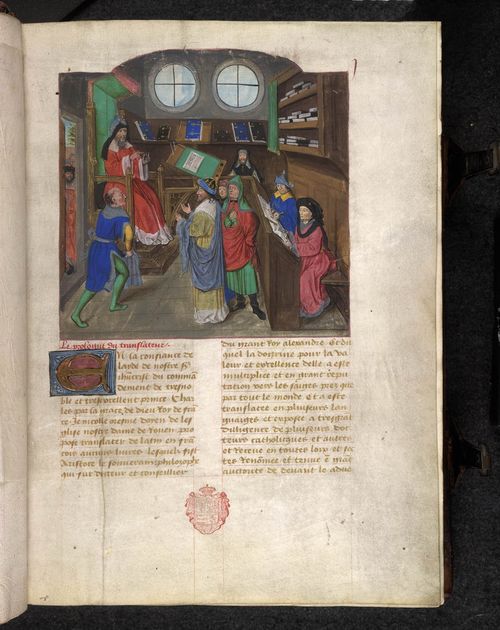 Le prologue du translateur
En la confiance de
layde de nostre s^r
ihucrist du comman
dement de tresno
ble et tresexcellent prince Char
les par la grace de dieu Roy de fra
ce Je nicolle oresme doyen de les
glise nostre dame de Rouen, pro
pose translater de latin en fran
cois aucuns livres lesquels fist
Aristote le souverain philosophe
qui fut docteur et conseillier
du grant Roy alexandre. Et du
quel la doctrine pour la va
leur et excellence delle a este
multiplice et en grant repu
tation vers les saiges pres que
par tout le monde Et a este
translatee en pluseurs lan
guaiges et exposee a tresgrat
dilligence de pluseurs doc
teurs catholicques et autres
et Receue en toutes loix et sec
tes Renommee et tenue en grat
auctorite de devant le adve